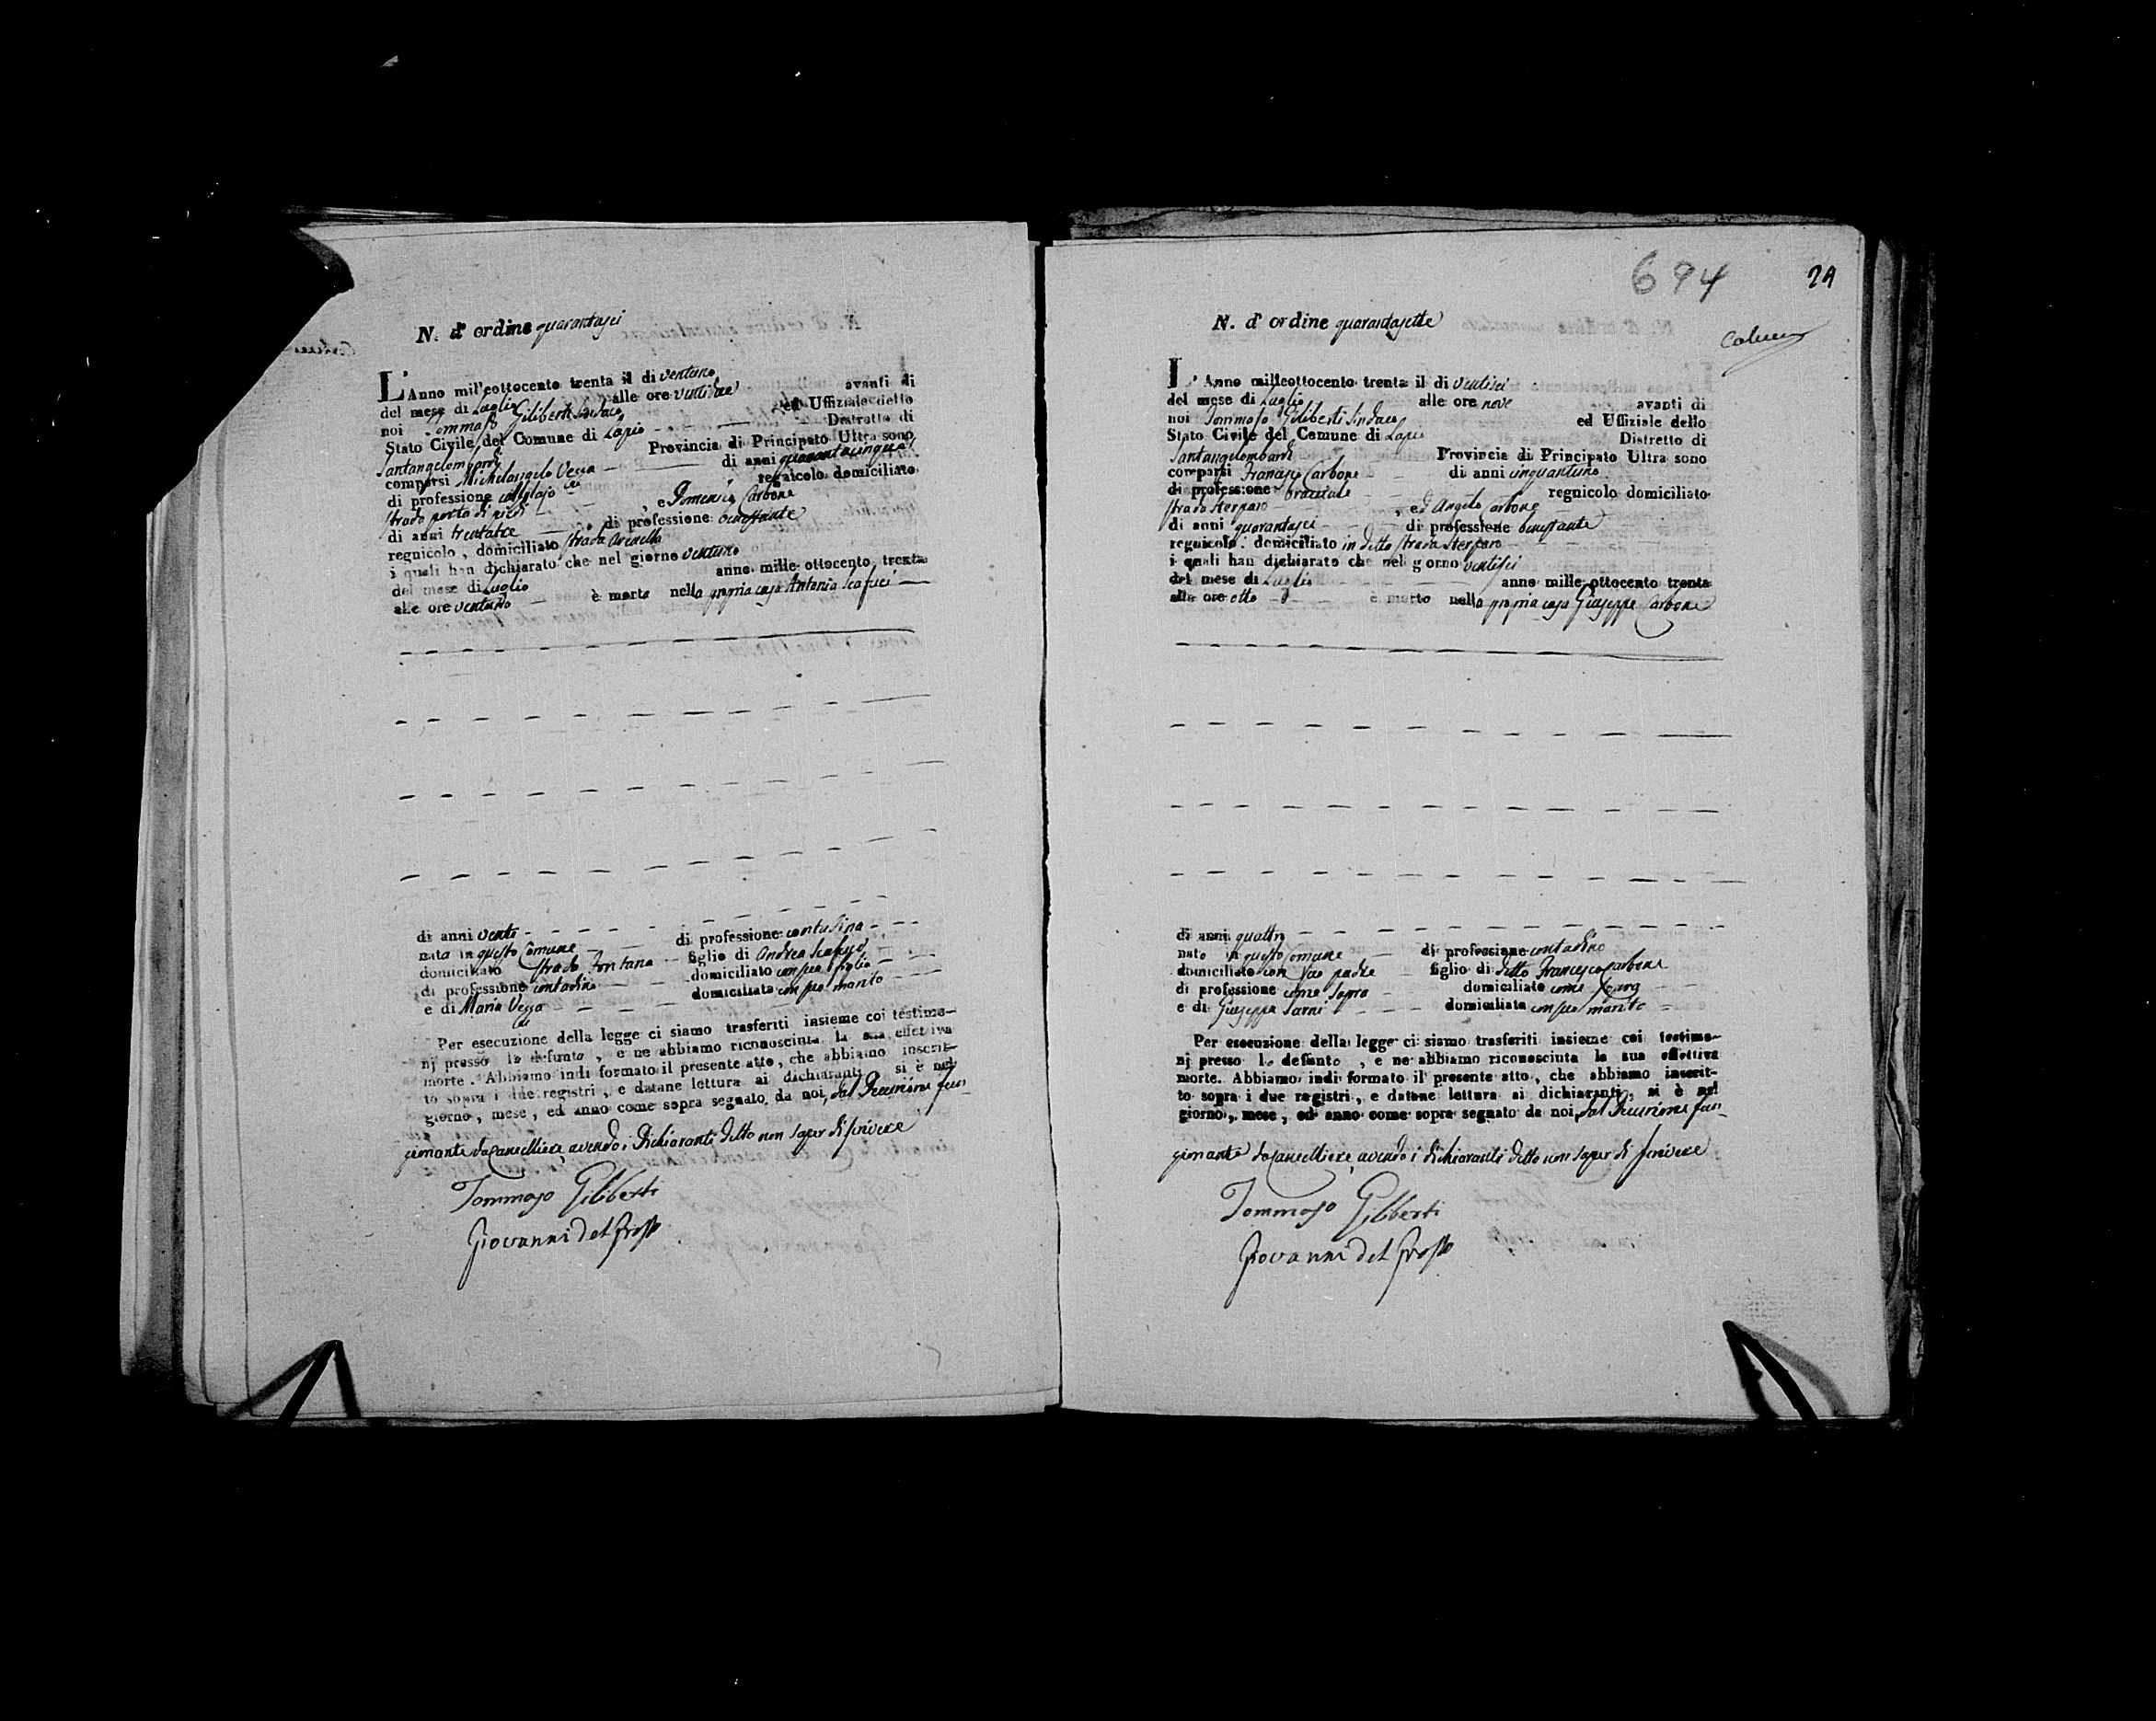 N. d' ordine quarantasei
L'Anno mil'eottocento trenta il di ventuno
del mese di Luglio alle ore ventidue avanti di
noi Tommaso Giliberti Sindaco ed Uffiziale dello
Stato Civile del Comune di Lapio Distretto di
Santangelombardi Provincia di Principato Ultra sono
comparsi Michelangelo Vecca di anni quarantacinque
di professione regnicolo domiciliato
strada porta di piedi , e Domenico Carbone
di anni trentatre di professione benestante
regnicolo, domiciliato strada
i quali han dichiarato che nel giorno ventuno
del mese di Luglio anno mille ottocento trenta
alle ore ventuno è morta nella propria casa Antonia Scafuci
di anni venti di professione contadina
nata in questo Comune figlio di Andrea
domiciliato strada Fontana domiciliato con sua figlia
di professione contadino domiciliata con suo marito
e di Maria
Per esecuzione della legge ci siamo trasferiti insieme coi testimo-
nj presso la defunta , e ne abbiamo riconosciuta la sua effettiva
morte. Abbiamo indi formato il presente atto, che abbiamo inscrit-
to sopra i due registri, e datane lettura ai dichiaranti si è nel
giorno, mese, ed anno come sopra segnato da noi, dal Decurione fun
zionante da Cancelliere, avendo i Dichiaranti detto non saper di scrivere
Tommaso Giliberti
Giovanni del Grosso
694
24
N. d' ordine quarantasette
L'Anno milleottocento trenta il di ventisei
del mese di Luglio alle ore nove avanti di
noi Tommaso Giliberti Sindaco ed Uffiziale dello
Stato Civile del Comune di Lapio Distretto di
Santangelombardi Provincia di Principato Ultra sono
comparsi Francesco Carbone di anni cinquantuno
di professione bracciale regnicolo domiciliato
strada Sterparo , ed Angelo Carbone
di anni quarantasei di professione benestante
regnicolo. domiciliato in detta strada Sterparo
i quali han dichiarato che nel giorno ventisei
del mese di Luglio anno mille ottocento trenta
alle ore otto è morto nella propria casa Giuseppe Carbone
di anni quattro
nato in questo Comune di professione contadino
domiciliato con suo padre figlio di detto Francesco Carbone
di professione come sopra domiciliato come
e di Giuseppa Sarni domiciliata con suo marito
Per esecuzione della legge ci siamo trasferiti insieme coi testimo-
nj presso lo defunto , e ne abbiamo riconosciuta la sua effettiva
morte. Abbiamo indi formato il presente atto, che abbiamo inscrit-
to sopra i due registri, e datane lettura ai dichiaranti, si è nel
giorno, mese, ed anno come sopra segnato da noi, dal Decurione fun
zionante da Cancelliere, avendo i dichiaranti detto non saper di scrivere
Tommaso Giliberti
Giovanni del Grosso